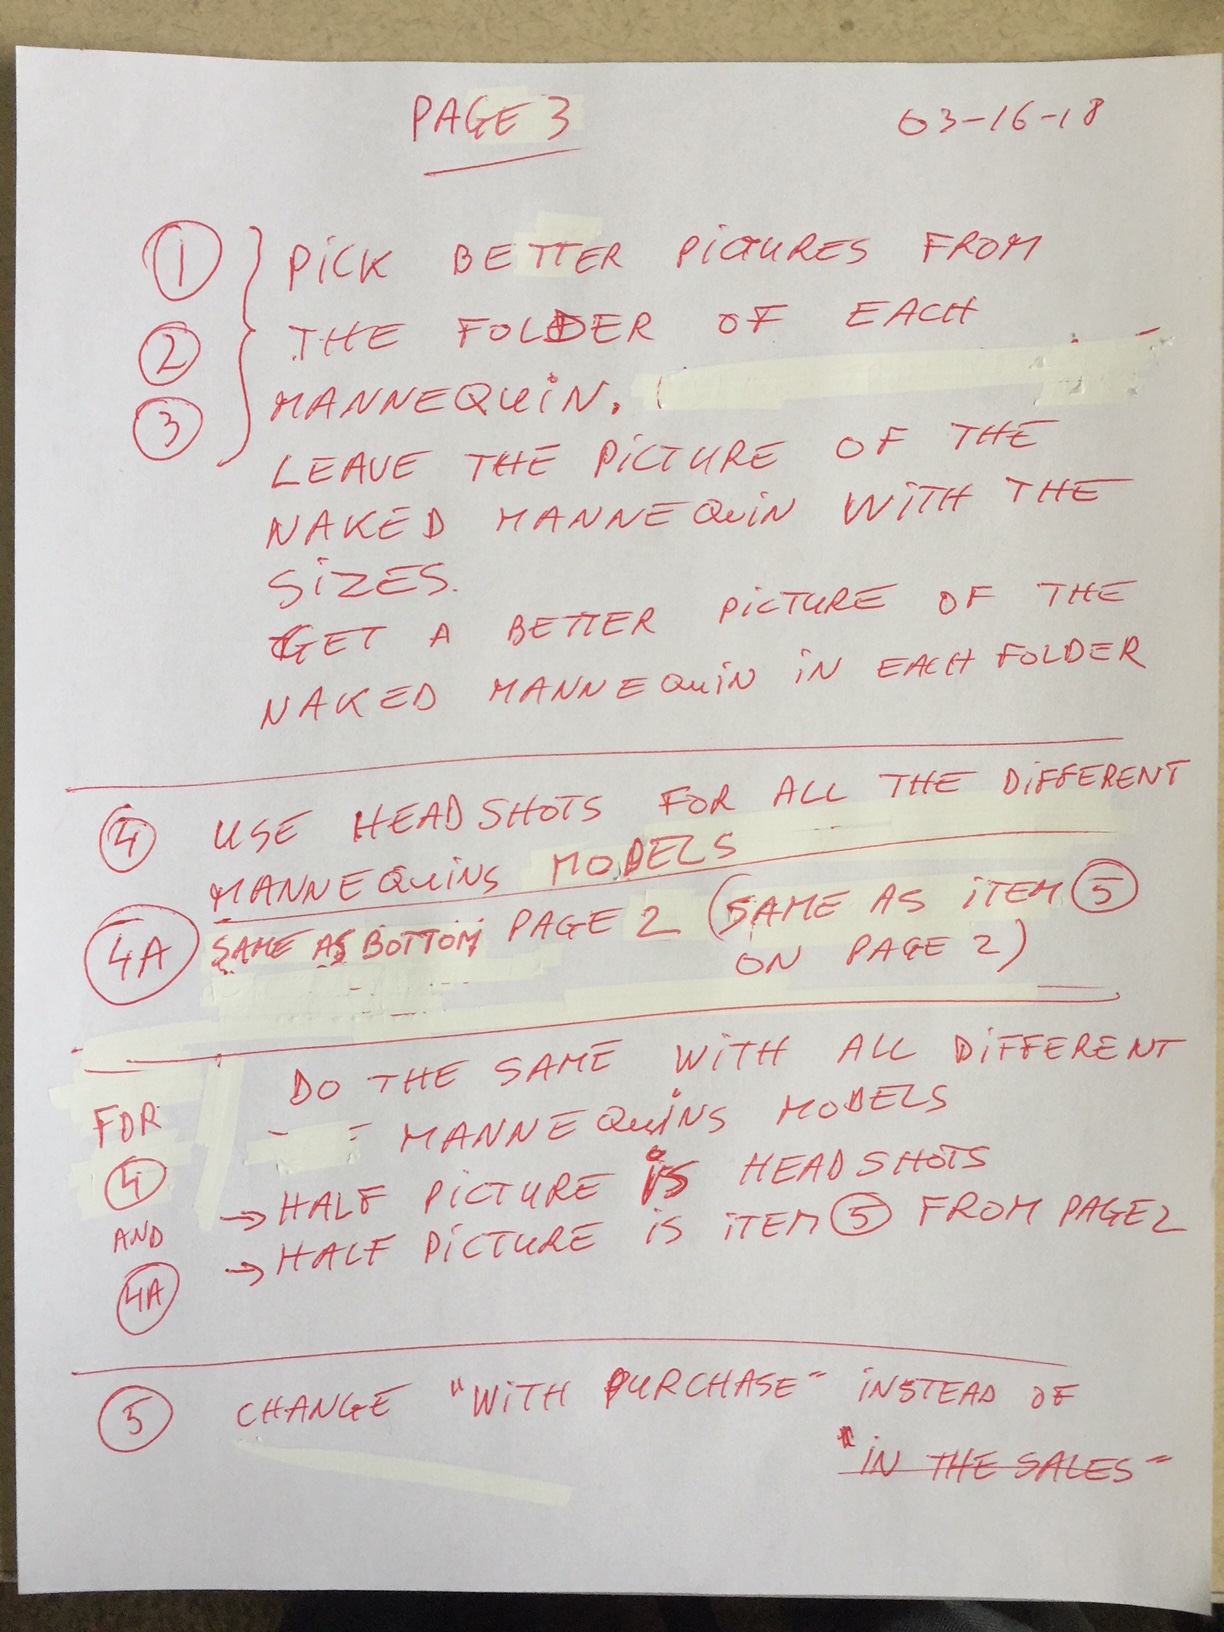 PAGE 3
03-16-18
① PICK BETTER PICTURES FROM
② THE FOLDER OF EACH
③ MANNEQUIN.
LEAVE THE PICTURE OF THE
NAKED MANNEQUIN WITH THE
SIZES.
GET A BETTER PICTURE OF THE
NAKED MANNEQUIN IN EACH FOLDER
④ USE HEADSHOTS FOR ALL THE DIFFERENT
MANNEQUINS MODELS
4A SAME AS BOTTOM PAGE 2 (SAME AS ITEM ⑤
ON PAGE 2)
DO THE SAME WITH ALL DIFFERENT
FOR MANNEQUINS MODELS
④ → HALF PICTURE IS HEADSHOTS
AND → HALF PICTURE IS ITEM ⑤ FROM PAGE 2
4A
⑤ CHANGE "WITH PURCHASE" INSTEAD OF
"IN THE SALES"